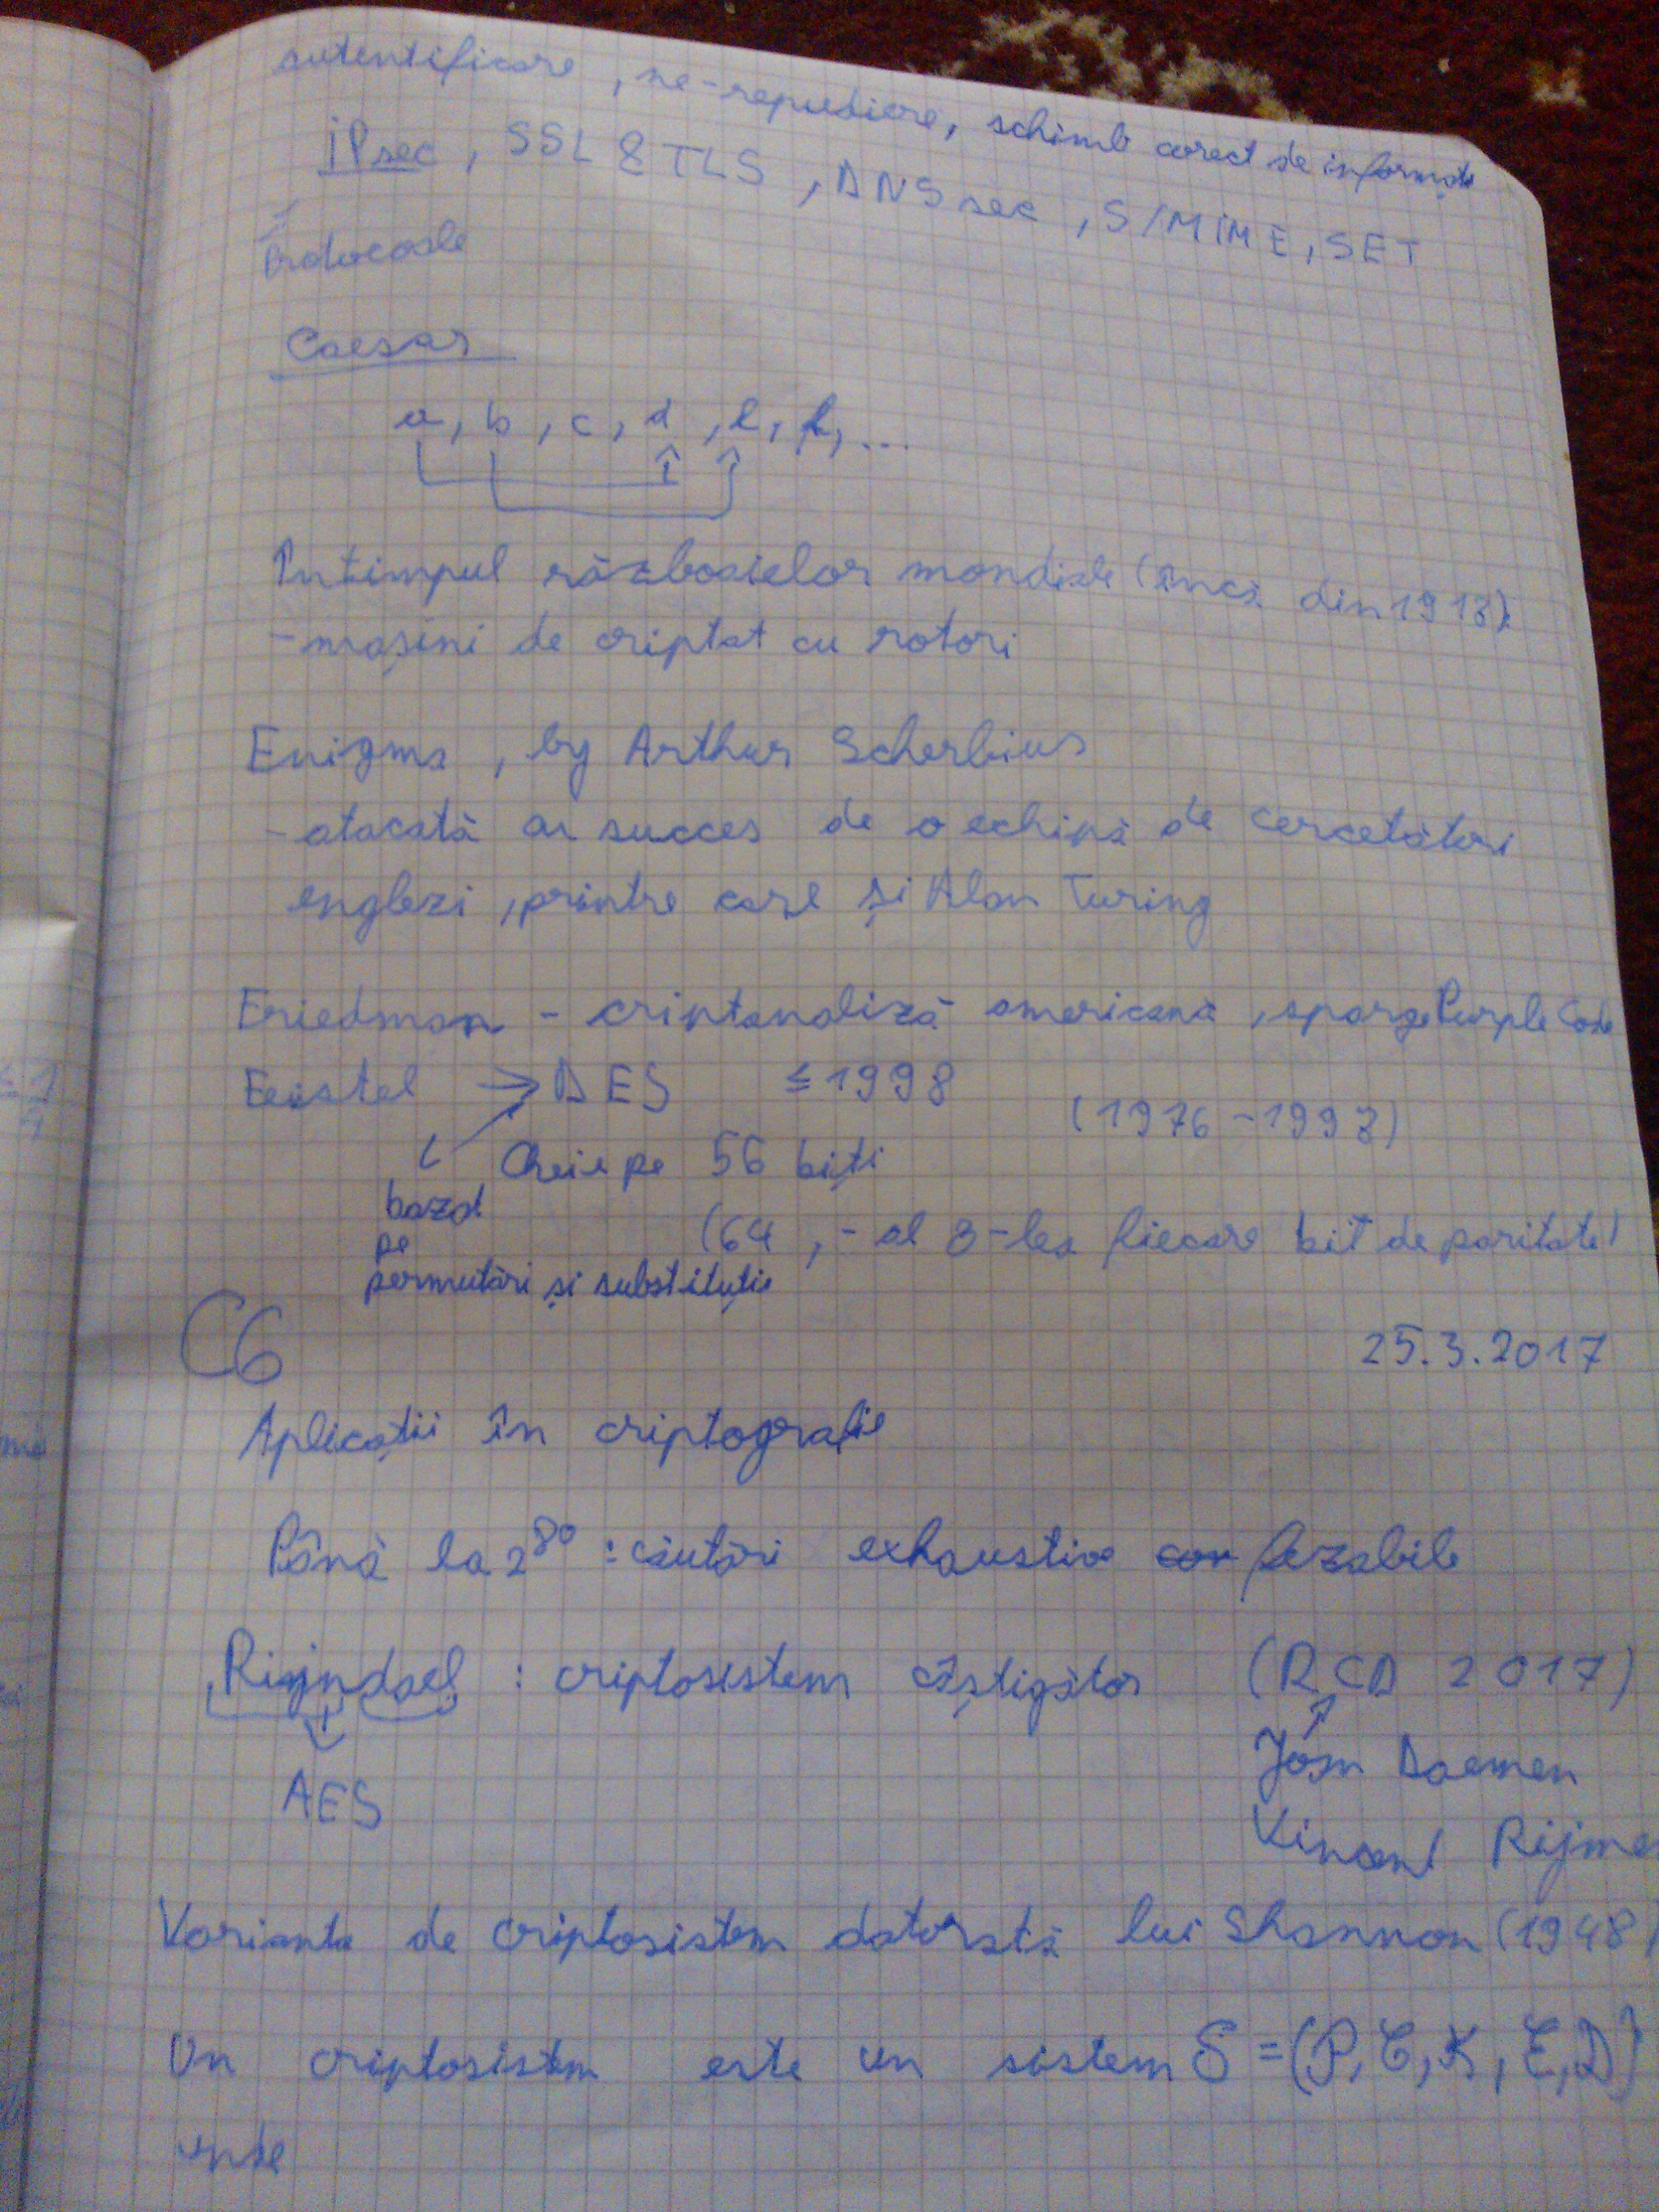 autentificare, ne-repudiere, schimb corect de informații
IPsec, SSL & TLS, DNSsec, S/MIME, SET
Protocoale
Caesar
a, b, c, d, e, f, ...
În timpul războaielor mondiale (încă din 1913):
- mașini de criptat cu rotori
Enigma, by Arthur Scherbius
- atacată cu succes de o echipă de cercetători
englezi, printre care și Alan Turing
Friedman - criptanaliză americană, sparge Purple Code
Feistel → DES ≤ 1998
(1976 - 1998)
Cheie pe 56 biți
bazat
pe
permutări și substituție
(64, - al 8-lea fiecare bit de paritate)
C6
25.3.2017
Aplicații în criptografie
Până la 2^80 : căutări exhaustive fezabile
Rijndael : criptosistem câștigător (RCD 2017)
AES
Joan Daemen
Vincent Rijmen
Varianta de criptosistem datorată lui Shannon (1948)
Un criptosistem este un sistem S = (P, C, K, E, D)
unde